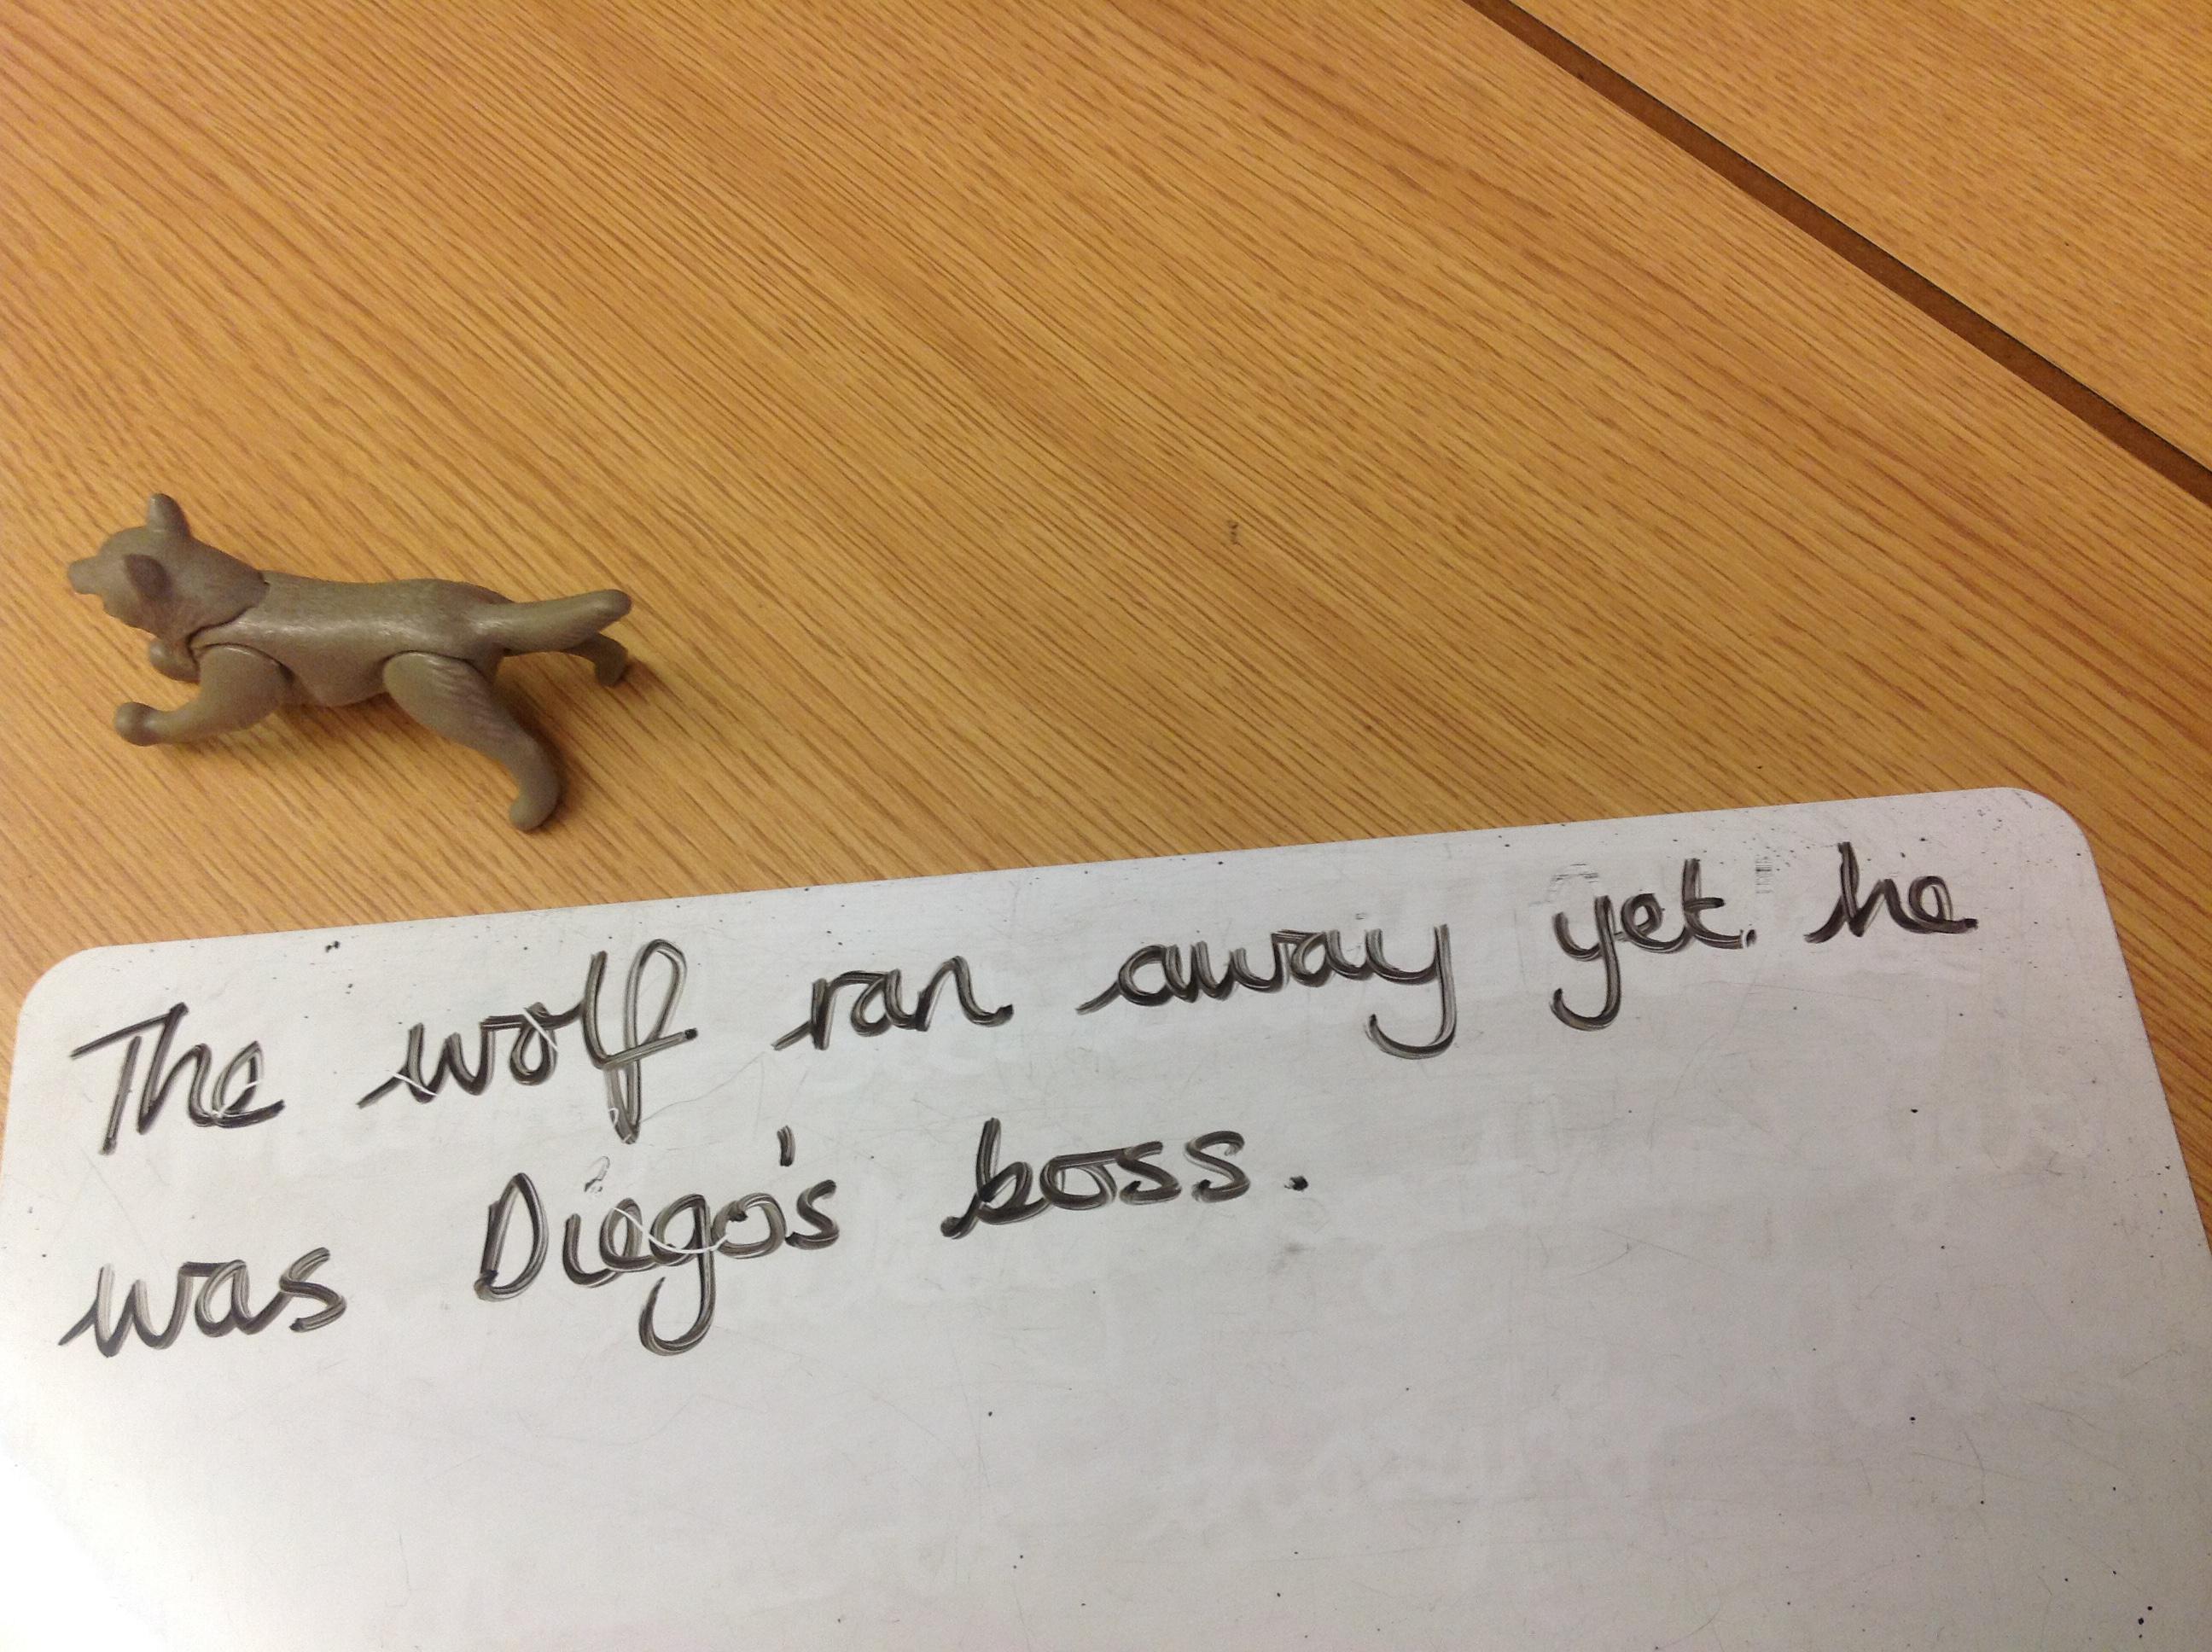 The wolf ran away yet he
was Diego's boss.